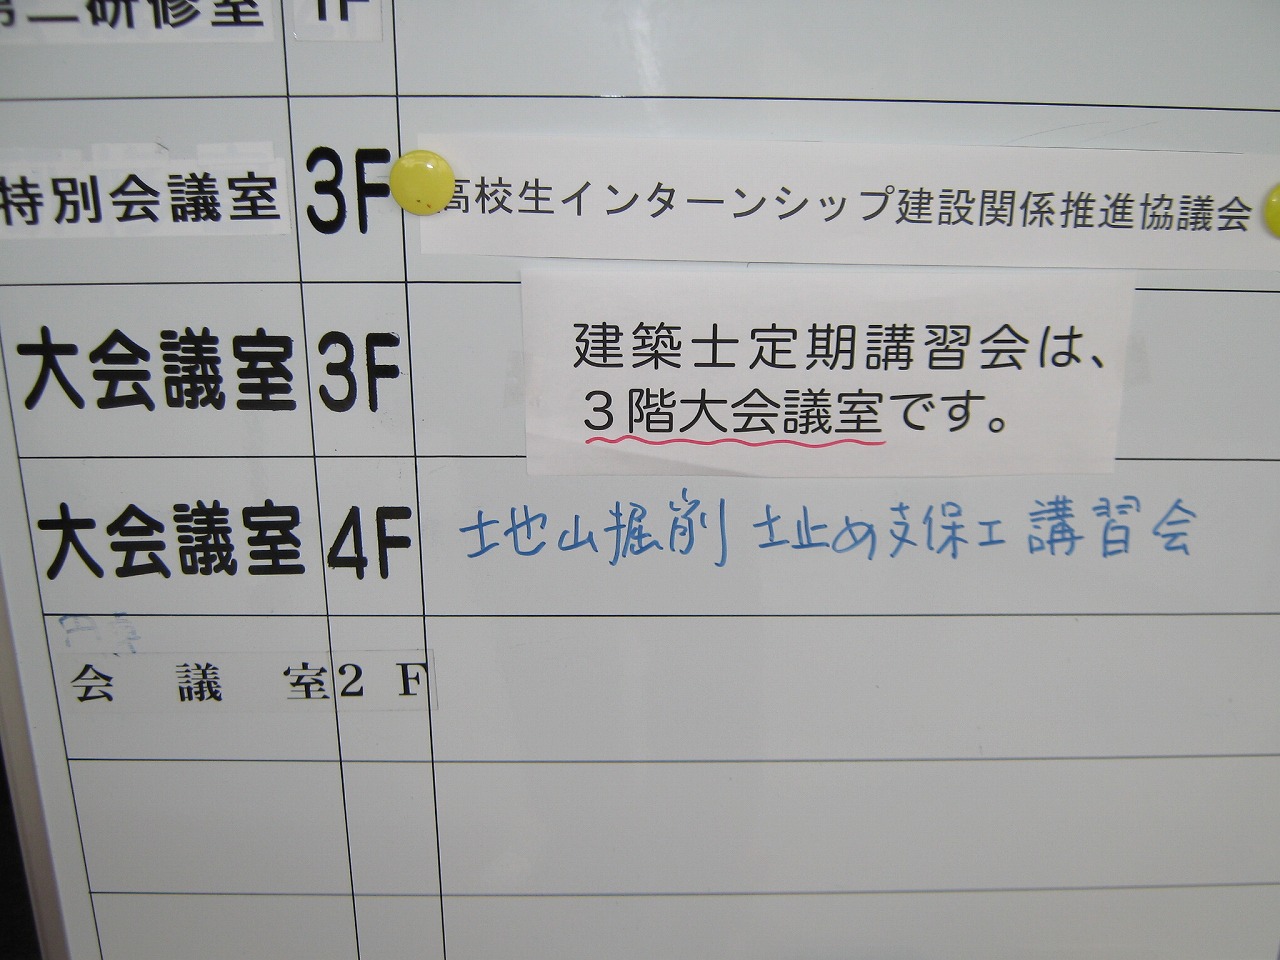 第二研修室 1F
特別会議室 3F 高校生インターンシップ建設関係推進協議会
大会議室 3F
建築士定期講習会は、
3階大会議室です。
大会議室 4F 土地山掘削 土止め支保工講習会
会議室 2F